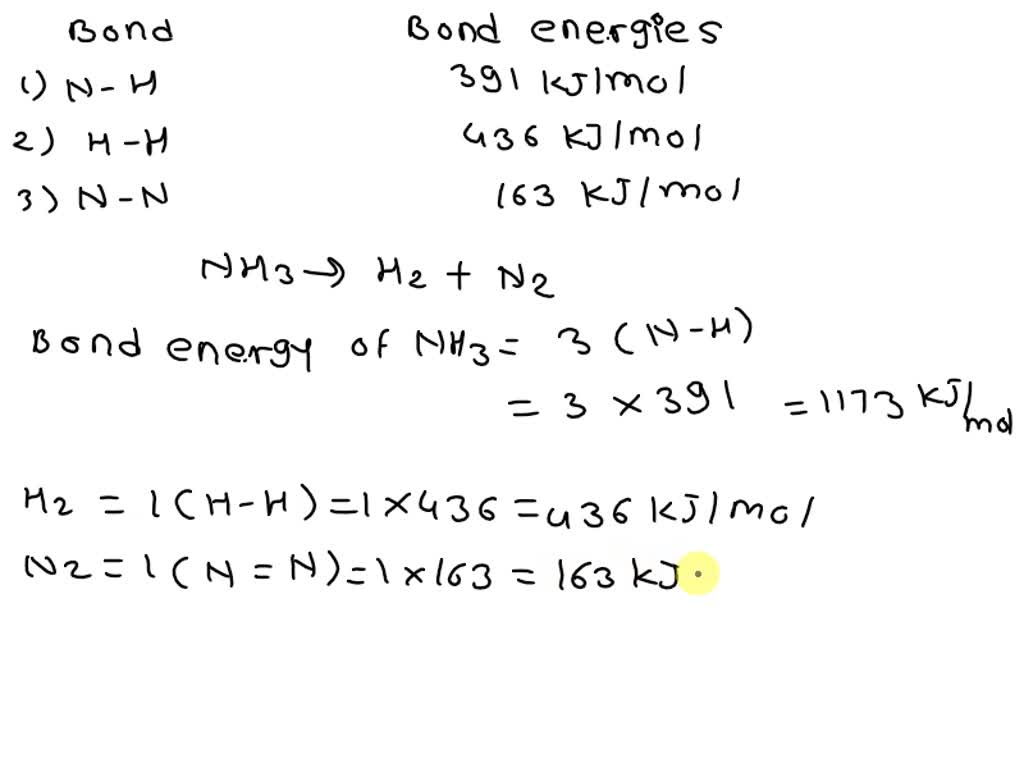 Bond Bond energies
1) N-H 391 KJ/mol
2) H-H 436 KJ/mol
3) N-N 163 KJ/mol
NH3→ H2 + N2
Bond energy of NH3 = 3 (N-H)
= 3 × 391 = 1173 KJ/mol
H2 = 1(H-H) = 1×436 = 436 KJ/mol
N2 = 1(N=N) = 1×163 = 163 KJ